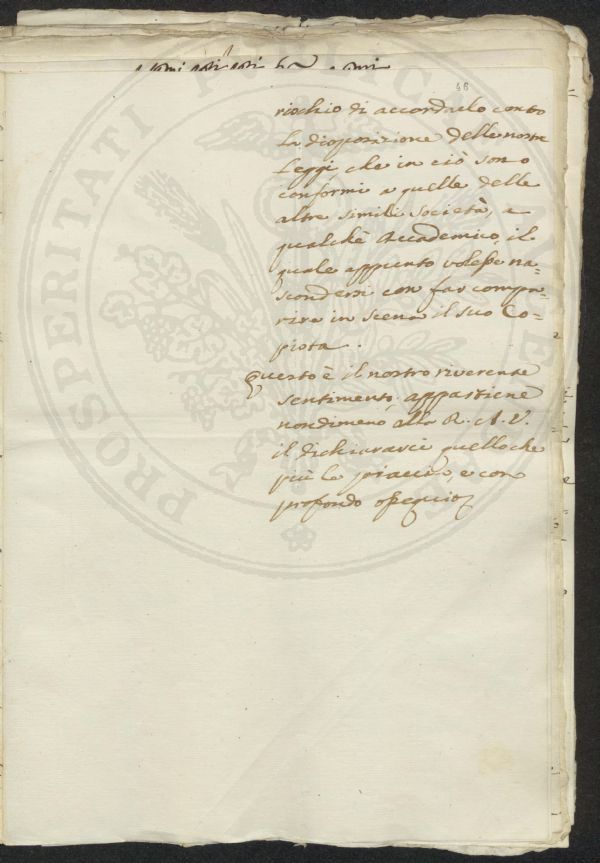 46
rischio di accordarlo contro
la disposizione delle nostre
Leggi che in ciò sono
conformi a quelle delle
altre simili società, a
qualchè Accademico, il
quale appunto volesse na=
scondersi con far compa=
rire in scena il suo Co=
pista.
Questo è il nostro riverente
sentimento, appartiene
nondimeno alla R. A. V.
il dichiararci quello che
più le piaccia, e con
profondo ossequio
PROSPERITATI PUBLICAE AUGENDAE